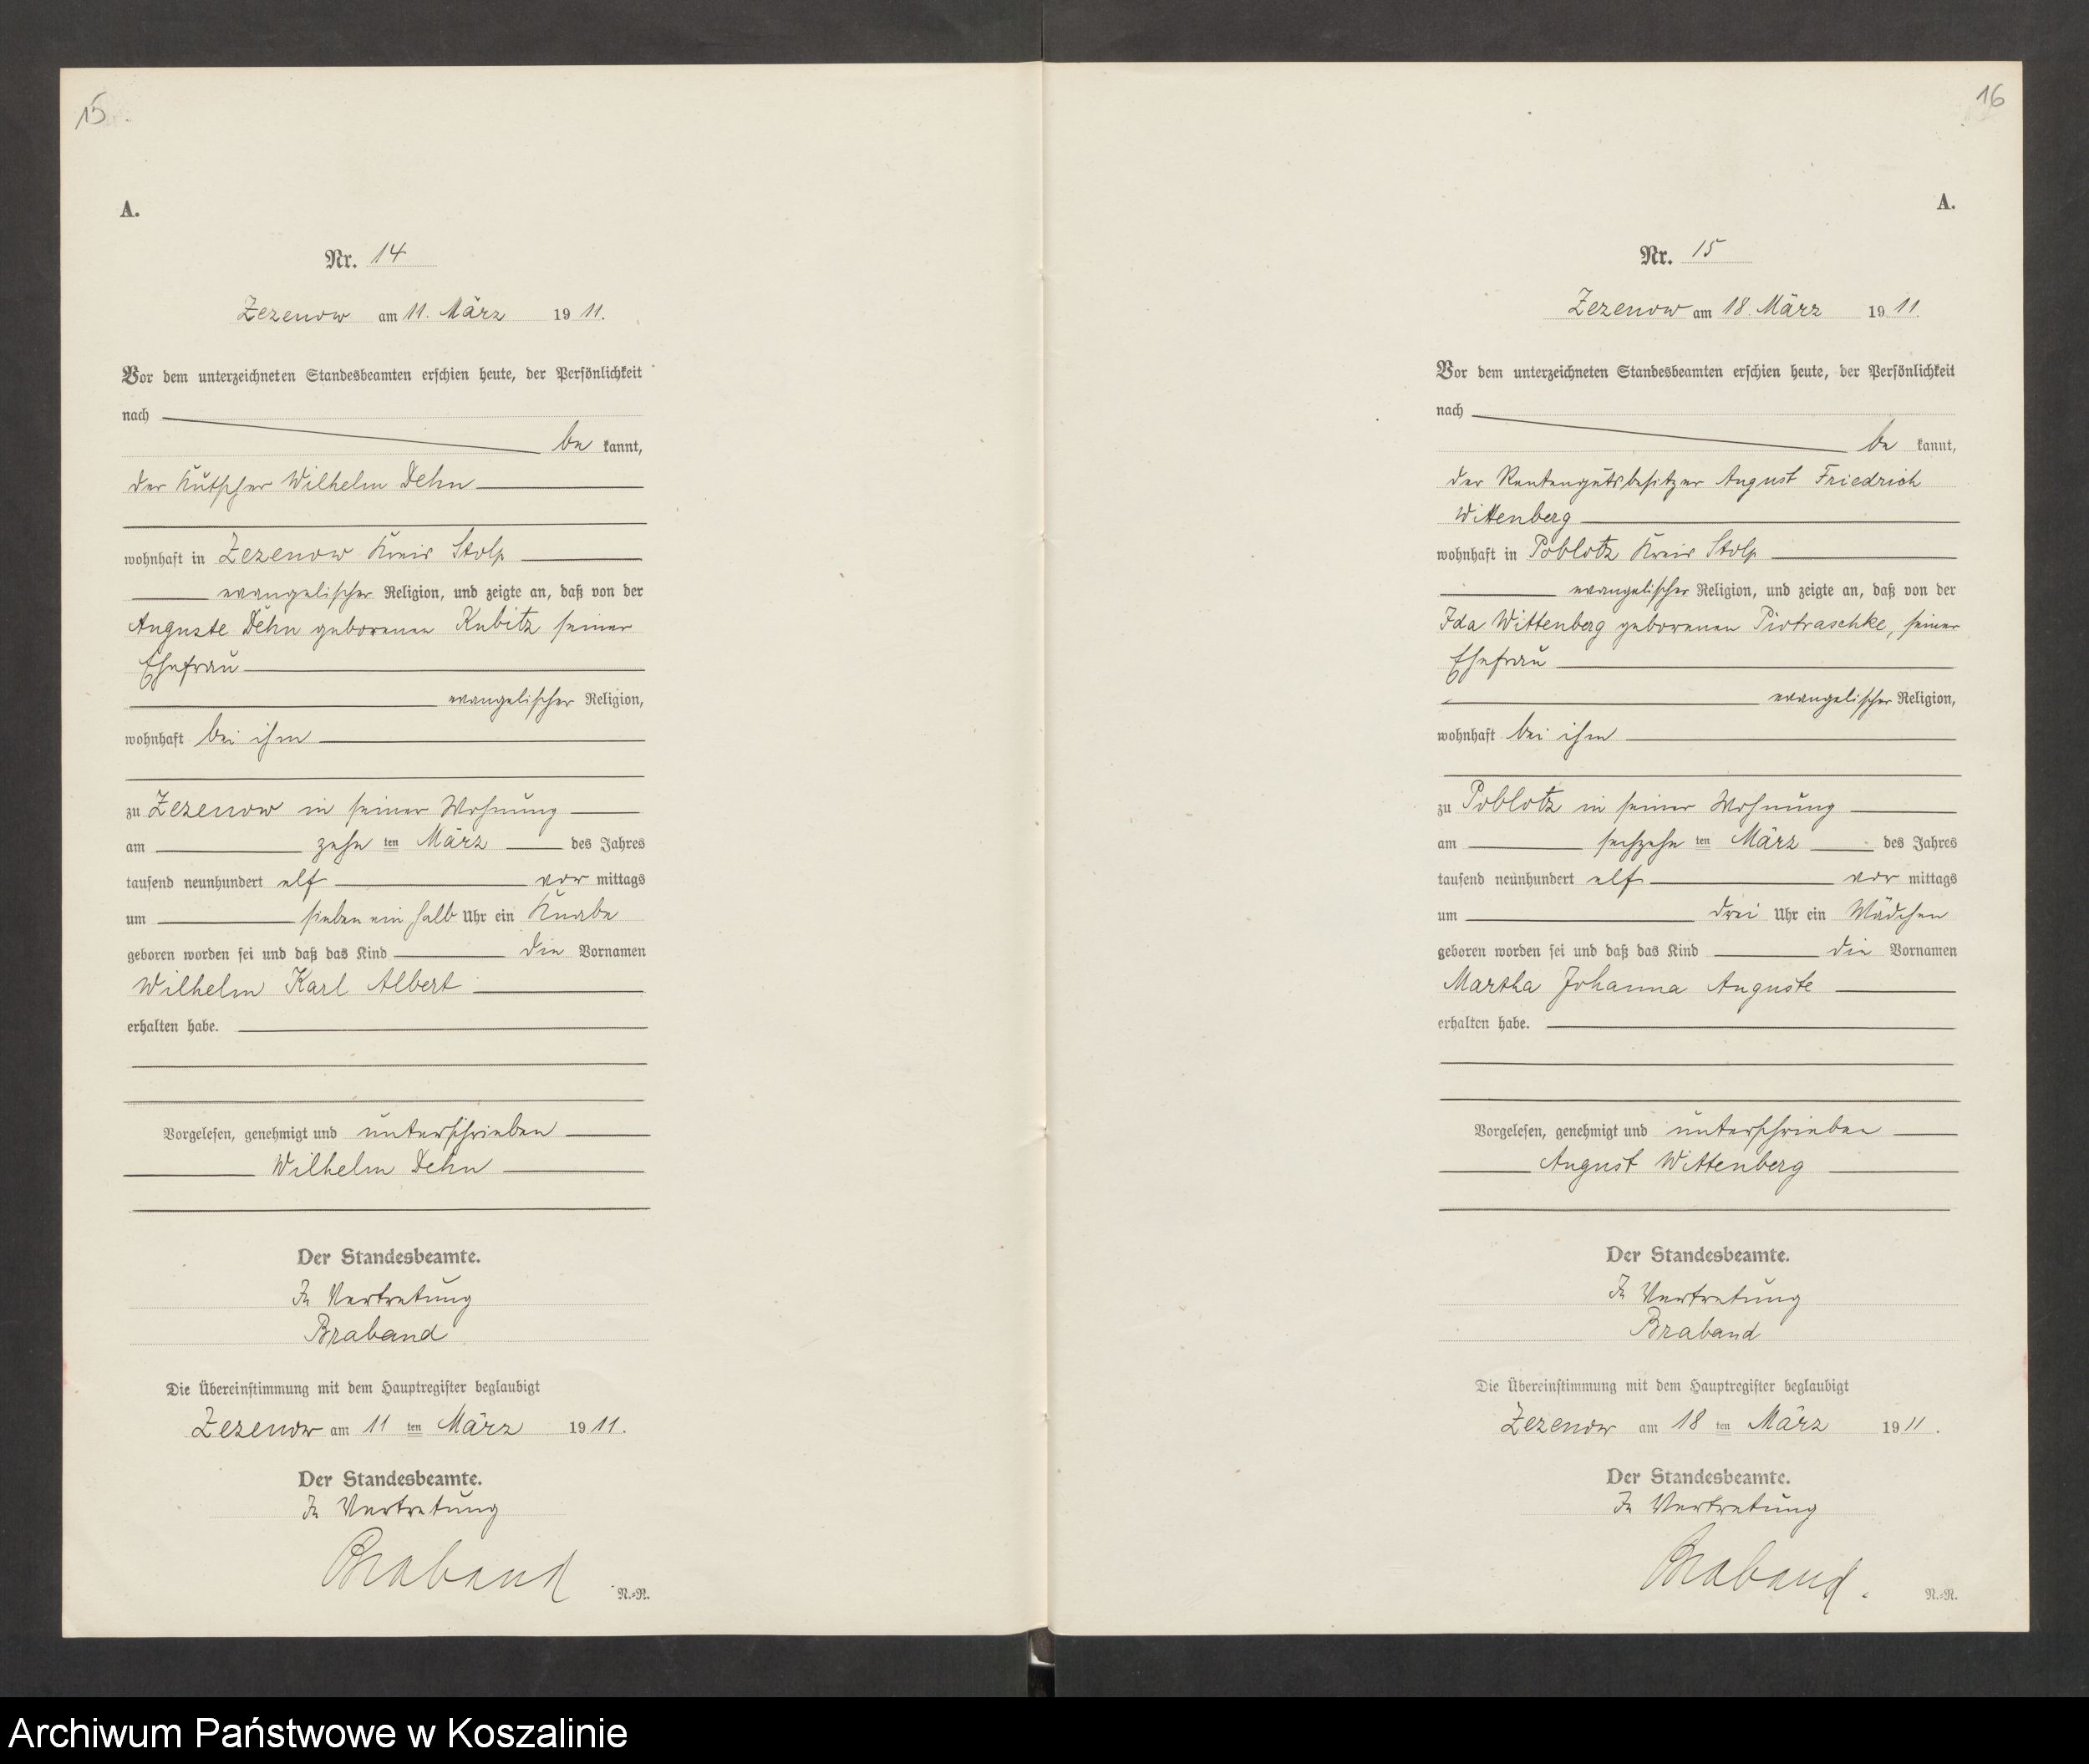 15
A.
Nr. 14
Zezenow am 11. März 1911.
Vor dem unterzeichneten Standesbeamten erschien heute, der Persönlichkeit
nach
be kannt,
der Kutscher Wilhelm Dehn
wohnhaft in Zezenow Kreis Stolp
evangelischer Religion, und zeigte an, daß von der
Auguste Dehn geborenen Kubitz seiner
Ehefrau
evangelischer Religion,
wohnhaft bei ihm
zu Zezenow in seiner Wohnung
am zehn ten März des Jahres
tausend neunhundert elf vor mittags
um sieben ein halb Uhr ein Knabe
geboren worden sei und daß das Kind die Vornamen
Wilhelm Karl Albert
erhalten habe.
Vorgelesen, genehmigt und unterschrieben
Wilhelm Dehn
Der Standesbeamte.
In Vertretung
Braband
Die Übereinstimmung mit dem Hauptregister beglaubigt
Zezenow am 11 ten März 1911.
Der Standesbeamte.
In Vertretung
Braband
N.=R.
16
A.
Nr. 15
Zezenow am 18. März 1911.
Vor dem unterzeichneten Standesbeamten erschien heute, der Persönlichkeit
nach
be kannt,
der Rentengutsbesitzer August Friedrich
Wittenberg
wohnhaft in Poblotz Kreis Stolp
evangelischer Religion, und zeigte an, daß von der
Ida Wittenberg geborenen Piotraschke, seiner
Ehefrau
evangelischer Religion,
wohnhaft bei ihm
zu Poblotz in seiner Wohnung
am sechzehn ten März des Jahres
tausend neunhundert elf vor mittags
um drei Uhr ein Mädchen
geboren worden sei und daß das Kind die Vornamen
Martha Johanna Auguste
erhalten habe.
Vorgelesen, genehmigt und unterschrieben
August Wittenberg
Der Standesbeamte.
In Vertretung
Braband
Die Übereinstimmung mit dem Hauptregister beglaubigt
Zezenow am 18 ten März 1911.
Der Standesbeamte.
In Vertretung
Braband.
N.=R.
Archiwum Państwowe w Koszalinie